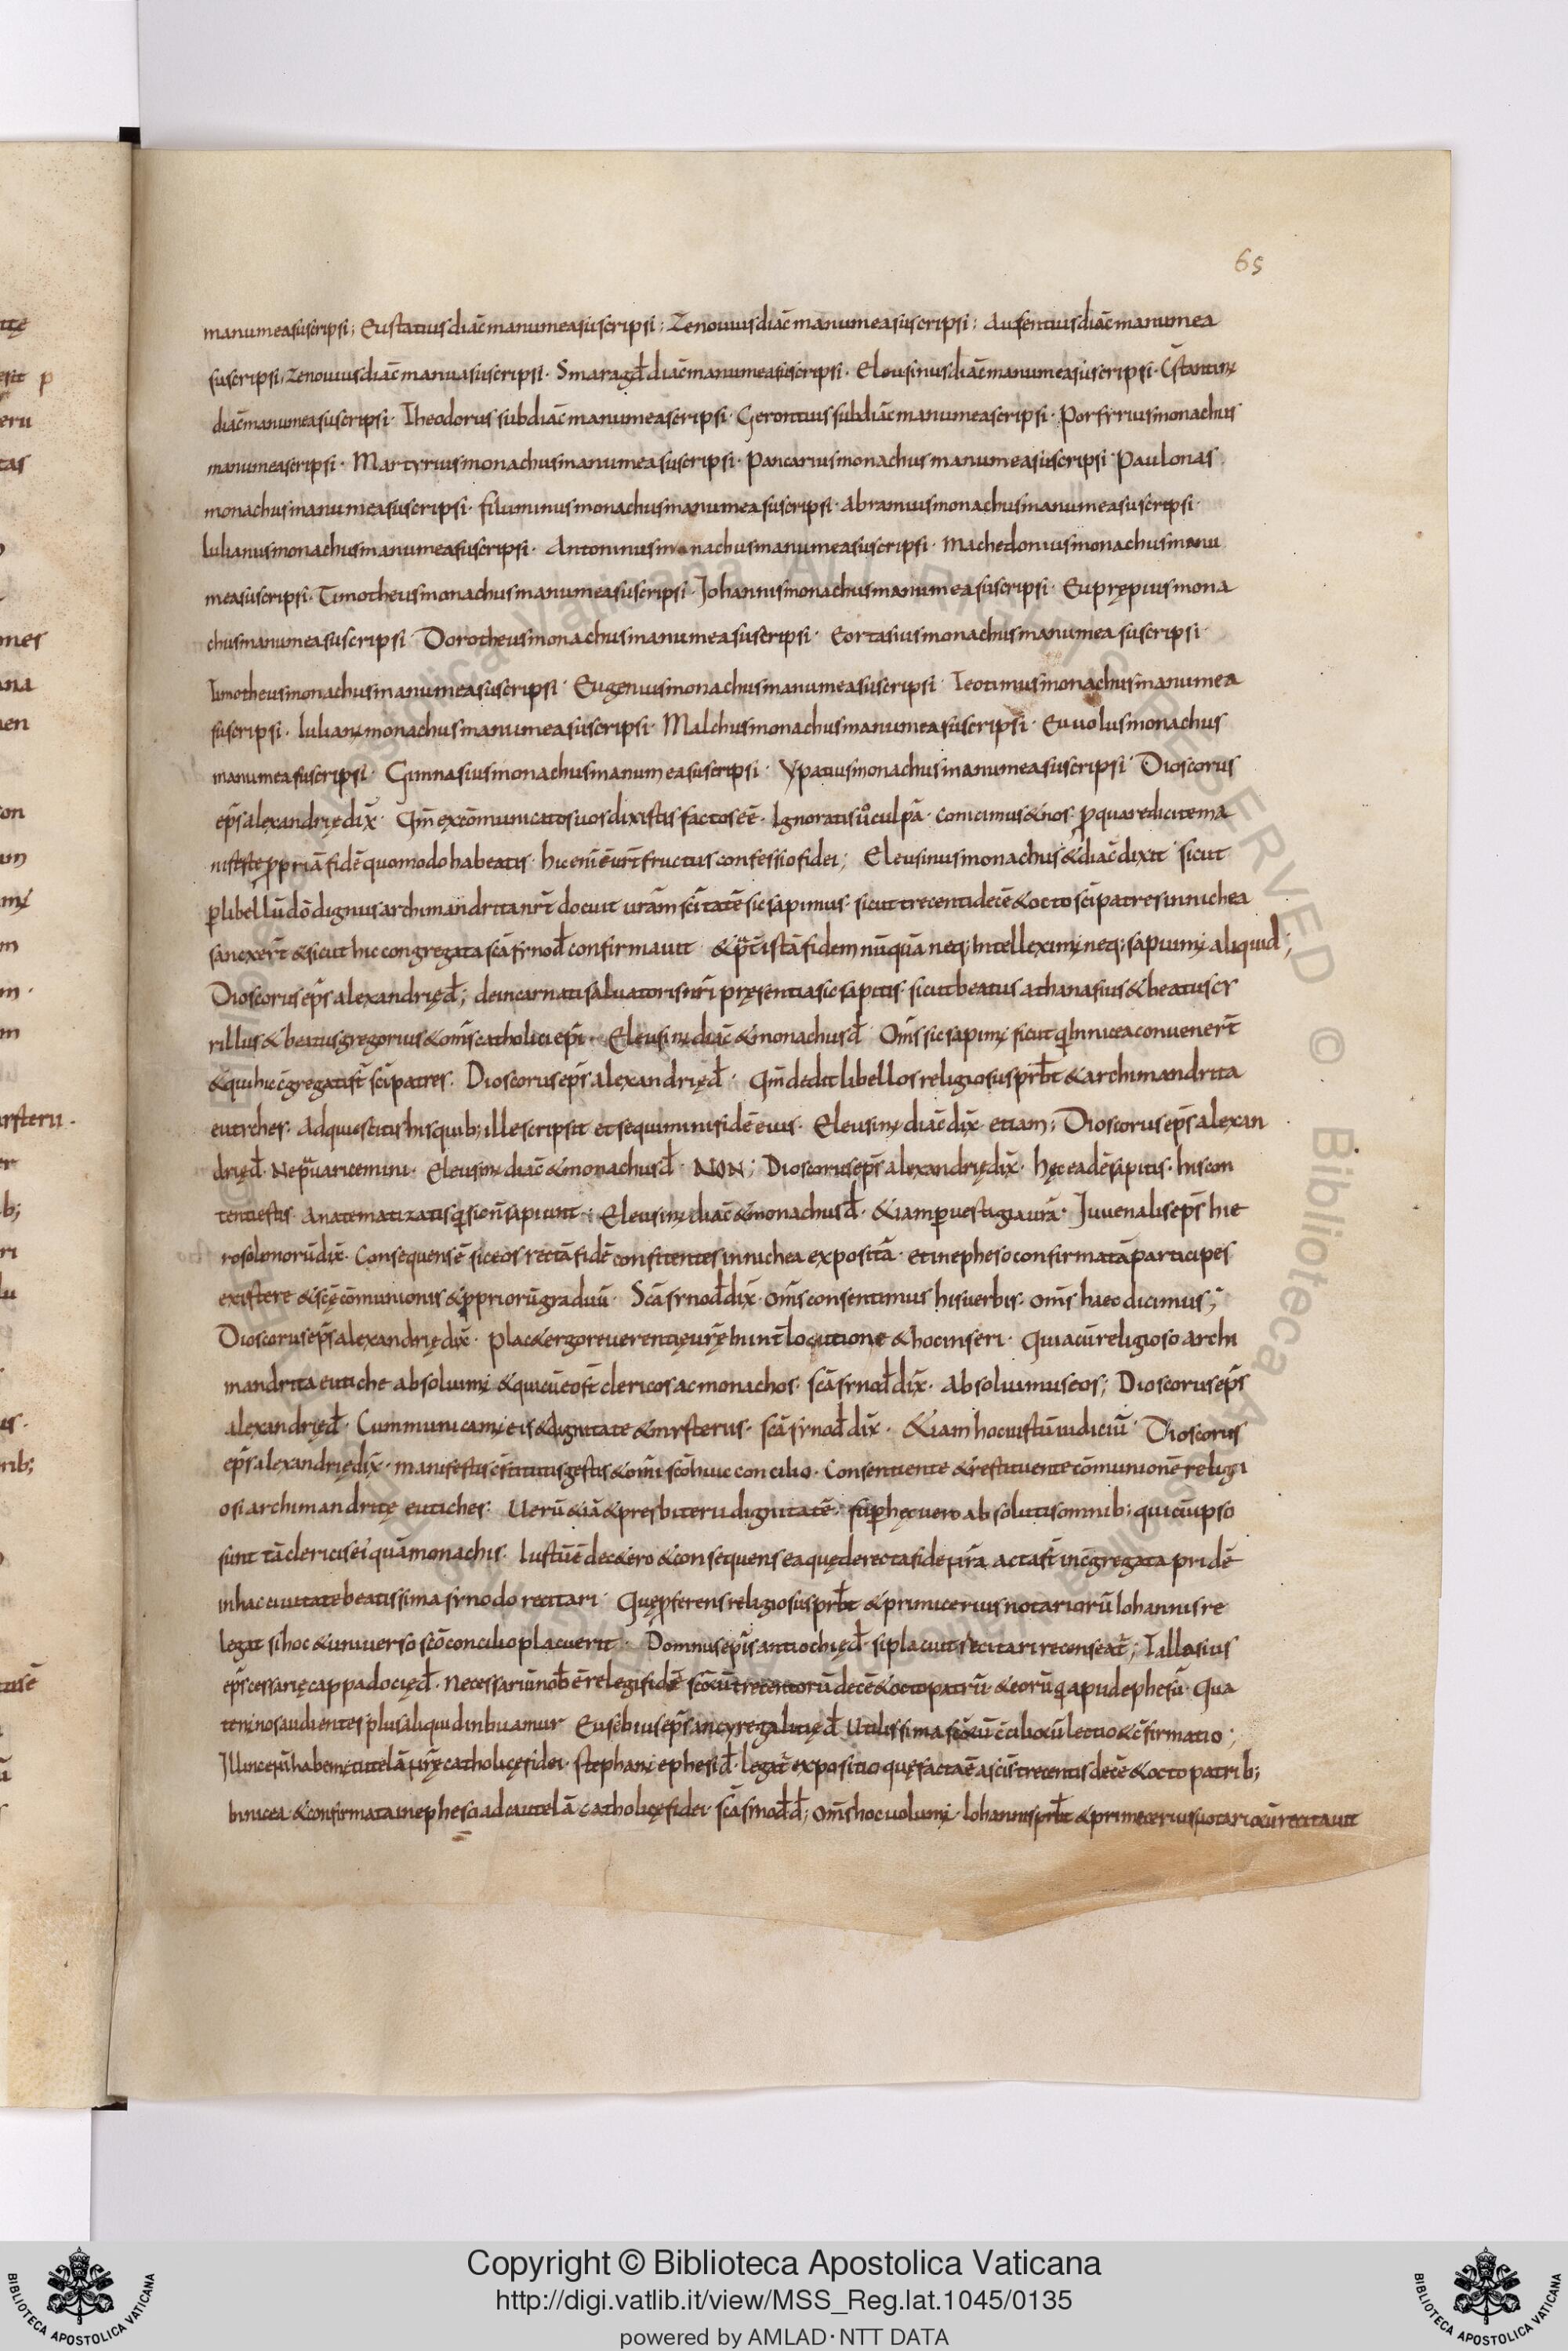 65
manu mea suscripsi; Eustatius diac̄ manu mea suscripsi; Zenouius diac̄ manu mea suscripsi; Auxentius diac̄ manu mea
suscripsi; Zenouius diac̄ manu a suscripsi. Smaragđ diac̄ manu mea suscripsi. Eleusinus diac̄ manu mea suscripsi.
diac̄ manu mea suscripsi. Theodorus subdiac̄ manu mea scripsi. Gerontius subdiac̄ manu mea scripsi. Porfyrius monachus
manu mea scripsi. Martyrius monachus manu mea suscripsi. Pancarius monachus manu mea suscripsi. Paulonas
monachus manu mea suscripsi. filuminus monachus manu mea suscripsi. Abramius monachus manu mea suscripsi.
Iulianus monachus manu mea suscripsi. Antoninus monachus manu mea suscripsi. Machedonius monachus manu
mea suscripsi. Timotheus monachus manu mea suscripsi. Johannis monachus manu mea suscripsi. Euprępius mona
chus manu mea suscripsi. Dorotheus monachus manu mea suscripsi. Eortasius monachus manu mea suscripsi.
Timotheus monachus manu mea suscripsi. Eugenius monachus manu mea suscripsi. Teotimus monachus manu mea
suscripsi. Iulianus monachus manu mea suscripsi. Malchus monachus manu mea suscripsi. Euuolus monachus
manu mea suscripsi. Gimnasius monachus manu mea suscripsi. Ypatius monachus manu mea suscripsi. Dioscorus
ep̄s alexandrię dix̄. Qm̄ excōmunicatos uos dixistis factos eē. Ignoratis u° culpā. conicimus & nos. p quare dicite ma
nifeste ppriā fidē quomodo habeatis. hic enī ē urī fructus confessio fidei; Eleusinus monachus & diac̄ dixit sicut
p libellū dō dignus archimandrita nr̄t docuit urām sc̄itatē sic sapimus. sicut trecenti decē & octo sc̄i patres in nichea
sanxer̄t & sicut hic congregata sc̄a synođ confirmauit. & p̄t istā fidem nūquā neq; intelleximus neq; sapuimus aliquid;
Dioscorus ep̄s alexandrię đ; de incarnati saluatoris nr̄i pręsentia sic sapitis. sicut beatus athanasius & beatus cy
rillus & beatus gregorius & om̄s catholici ep̄i. Eleusinus diac̄ & monachus đ. Om̄s sic sapimus sicut q in nicea conuener̄t
& qui hic c̄gregati st̄ sc̄i patres. Dioscorus ep̄s alexandrię đ. Qm̄ dedit libellos religiosus prb̄t & archimandrita
eutyches. Adquiescitis his quib; ille scripsit et sequimini fidē eius. Eleusinus diac̄ dix̄ etiam; Dioscorus ep̄s alexan
drię đ. Ne puaricemini. Eleusinus diac̄ & monachus đ. NON; Dioscorus ep̄s alexandrię dix̄. hęc eadē sapitis. his con
tenti estis. Anatematizatis q sic n̄ sapiunt; Eleusinus diac̄ & monachus đ. &iam p uestigia urā. Juuenalis ep̄s hie
rosolimorū dix̄. Consequens ē sic eos rectā fidē confitentes in nichea expositā. et in epheso confirmatā participes
existere & sc̄ę cōmunionis & ppriorū graduū. Sc̄a synođ dix̄. om̄s consentimus his uerbis. om̄s haec dicimus;
Dioscorus ep̄s alexandrię dix̄. plac& ergo reuerentię urę & hoc inseri. Quia cū religioso archi
mandrita eutiche absoluimus & quicū eo st̄ clericos ac monachos. sc̄a synođ dix̄. Absoluimus eos; Dioscorus ep̄s
alexandrię đ. Cummunicamus eis & dignitate & mysteriis. sc̄a synođ dix̄. &iam hoc iustū iudiciū. Dioscorus
ep̄s alexandrię dix̄. manifestis c̄stitutis gestis & omī sc̄o huic concilio. Consentiente & restituente cōmunionē religi
osi archimandritę eutiches. Uerū &iā & presbiterii dignitatē. sup hęc uero absolutis omnib; qui cū ipso
sunt tā clericis ei quā monachis. Iustū ē dec&ero & consequens ea quę de recta fide urā acta st̄ in c̄gregata pridē
in hac ciuitate beatissima synodo recitari. Quę pferens religiosus prb̄t & primicerius notariorū Iohannis re
legat si hoc & uniuerso sc̄o concilio placuerit. Domnus ep̄s antiochię đ. si placuit recitari recenseat̄; Tallasius
ep̄s cessarię cappadocię đ. necessariū nob̄ ē relegi fidē sc̄oxū trecentorū decē & octo patrū & eorū q apud ephesū. Qua
teni nos audientes plus aliquid inbuamur. Eusebius ep̄s ancyre galitię đ. Utilissima sc̄oxū c̄cilioxū lectio & c̄firmatio;
habemus tutelā urę catholicę fidei. Stephanus ephesi đ. legat̄ expositio quę facta ē a sc̄is trecentis decē & octo patrib;
in nicea & confirmata in epheso ad cautelā catholicę fidei. sc̄a sinođ đ; om̄s hoc uolumus. Iohannis prb̄t & primecerius notarioxū recitauit
Copyright © Biblioteca Apostolica Vaticana
http://digi.vatlib.it/view/MSS_Reg.lat.1045/0135
powered by AMLAD · NTT DATA